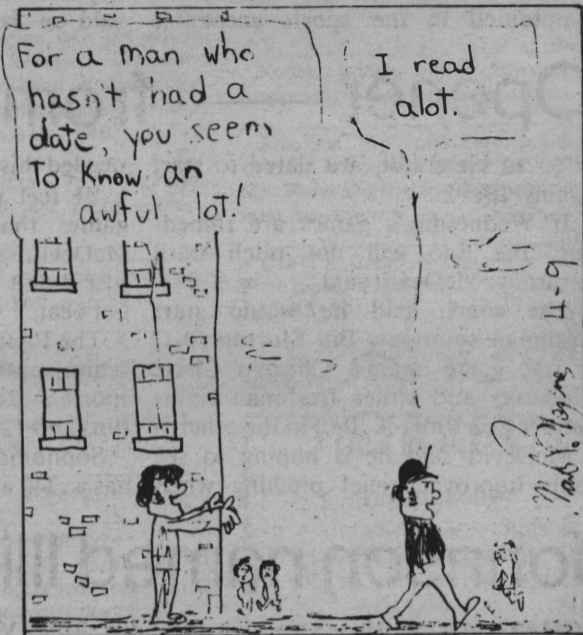 For a man who
hasn't had a
date, you seem
To know an
awful lot!
I read
alot.